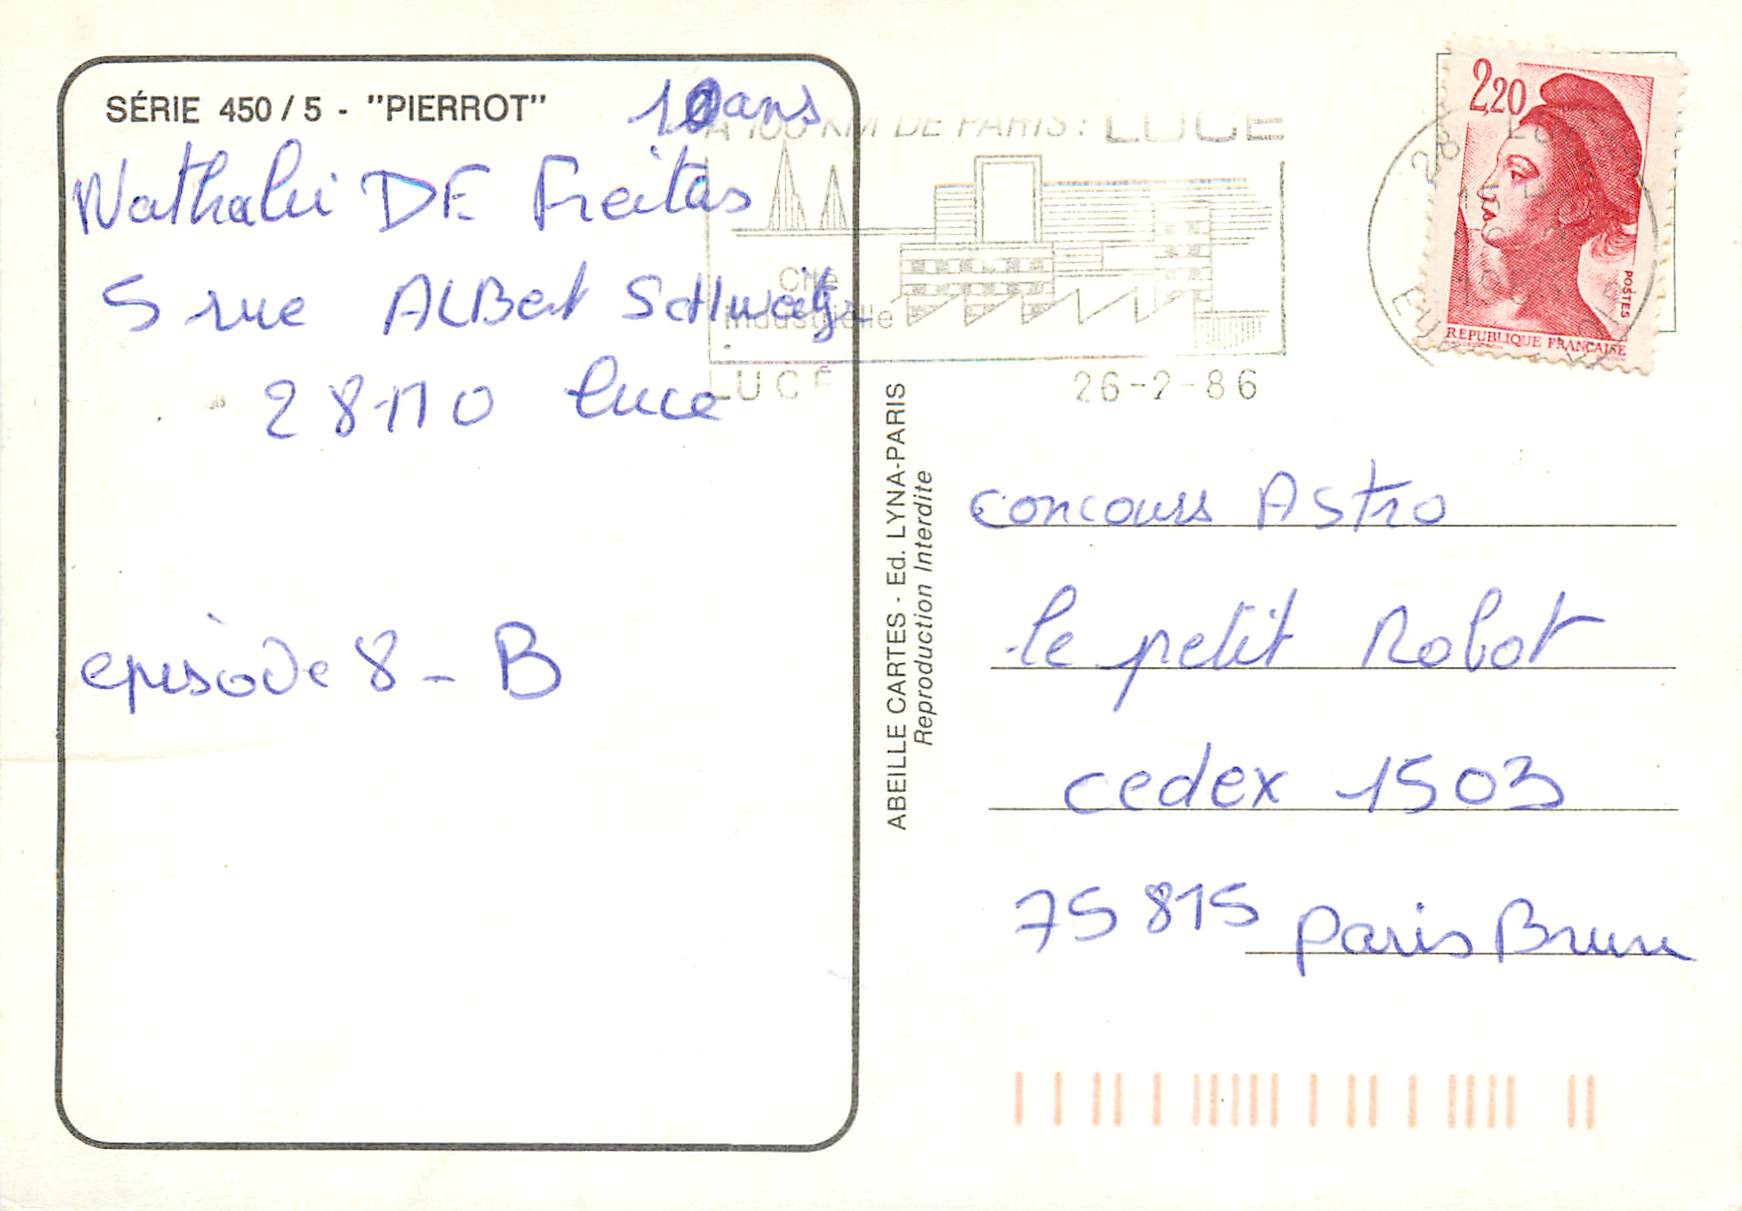 SÉRIE 450 / 5 - "PIERROT"
10 ans
Nathalie DE Freitas
5 rue ALBert SCHweitz
28110 luce
episode 8 - B
A 100 KM DE PARIS : LUCE
Cité
Industrielle
LUCE
26-2-86
2,20
POSTES
REPUBLIQUE FRANÇAISE
ABEILLE CARTES - Ed. LYNA-PARIS
Reproduction Interdite
concours Astro
le petit Robot
cedex 1503
75 815 Paris Brune